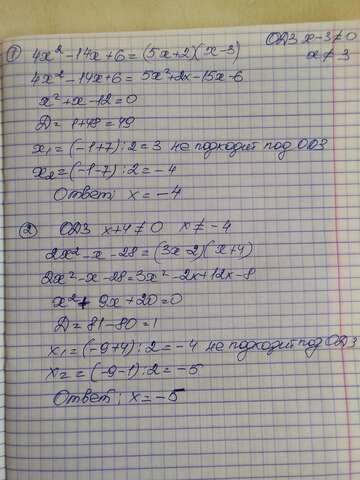 ① 4x² - 14x + 6 = (5x+2)(x-3) ОДЗ x-3≠0
x≠3
4x² - 14x + 6 = 5x² + 2x - 15x - 6
x² + x - 12 = 0
D = 1 + 48 = 49
x₁ = (-1+7):2 = 3 не подходит под ОДЗ
x₂ = (-1-7):2 = -4
Ответ: x = -4
② ОДЗ x+4≠0 x≠-4
2x² - x - 28 = (3x-2)(x+4)
2x² - x - 28 = 3x² - 2x + 12x - 8
x² + 9x + 20 = 0
D = 81 - 80 = 1
x₁ = (-9+4):2 = -4 не подходит под ОДЗ
x₂ = (-9-1):2 = -5
Ответ: x = -5